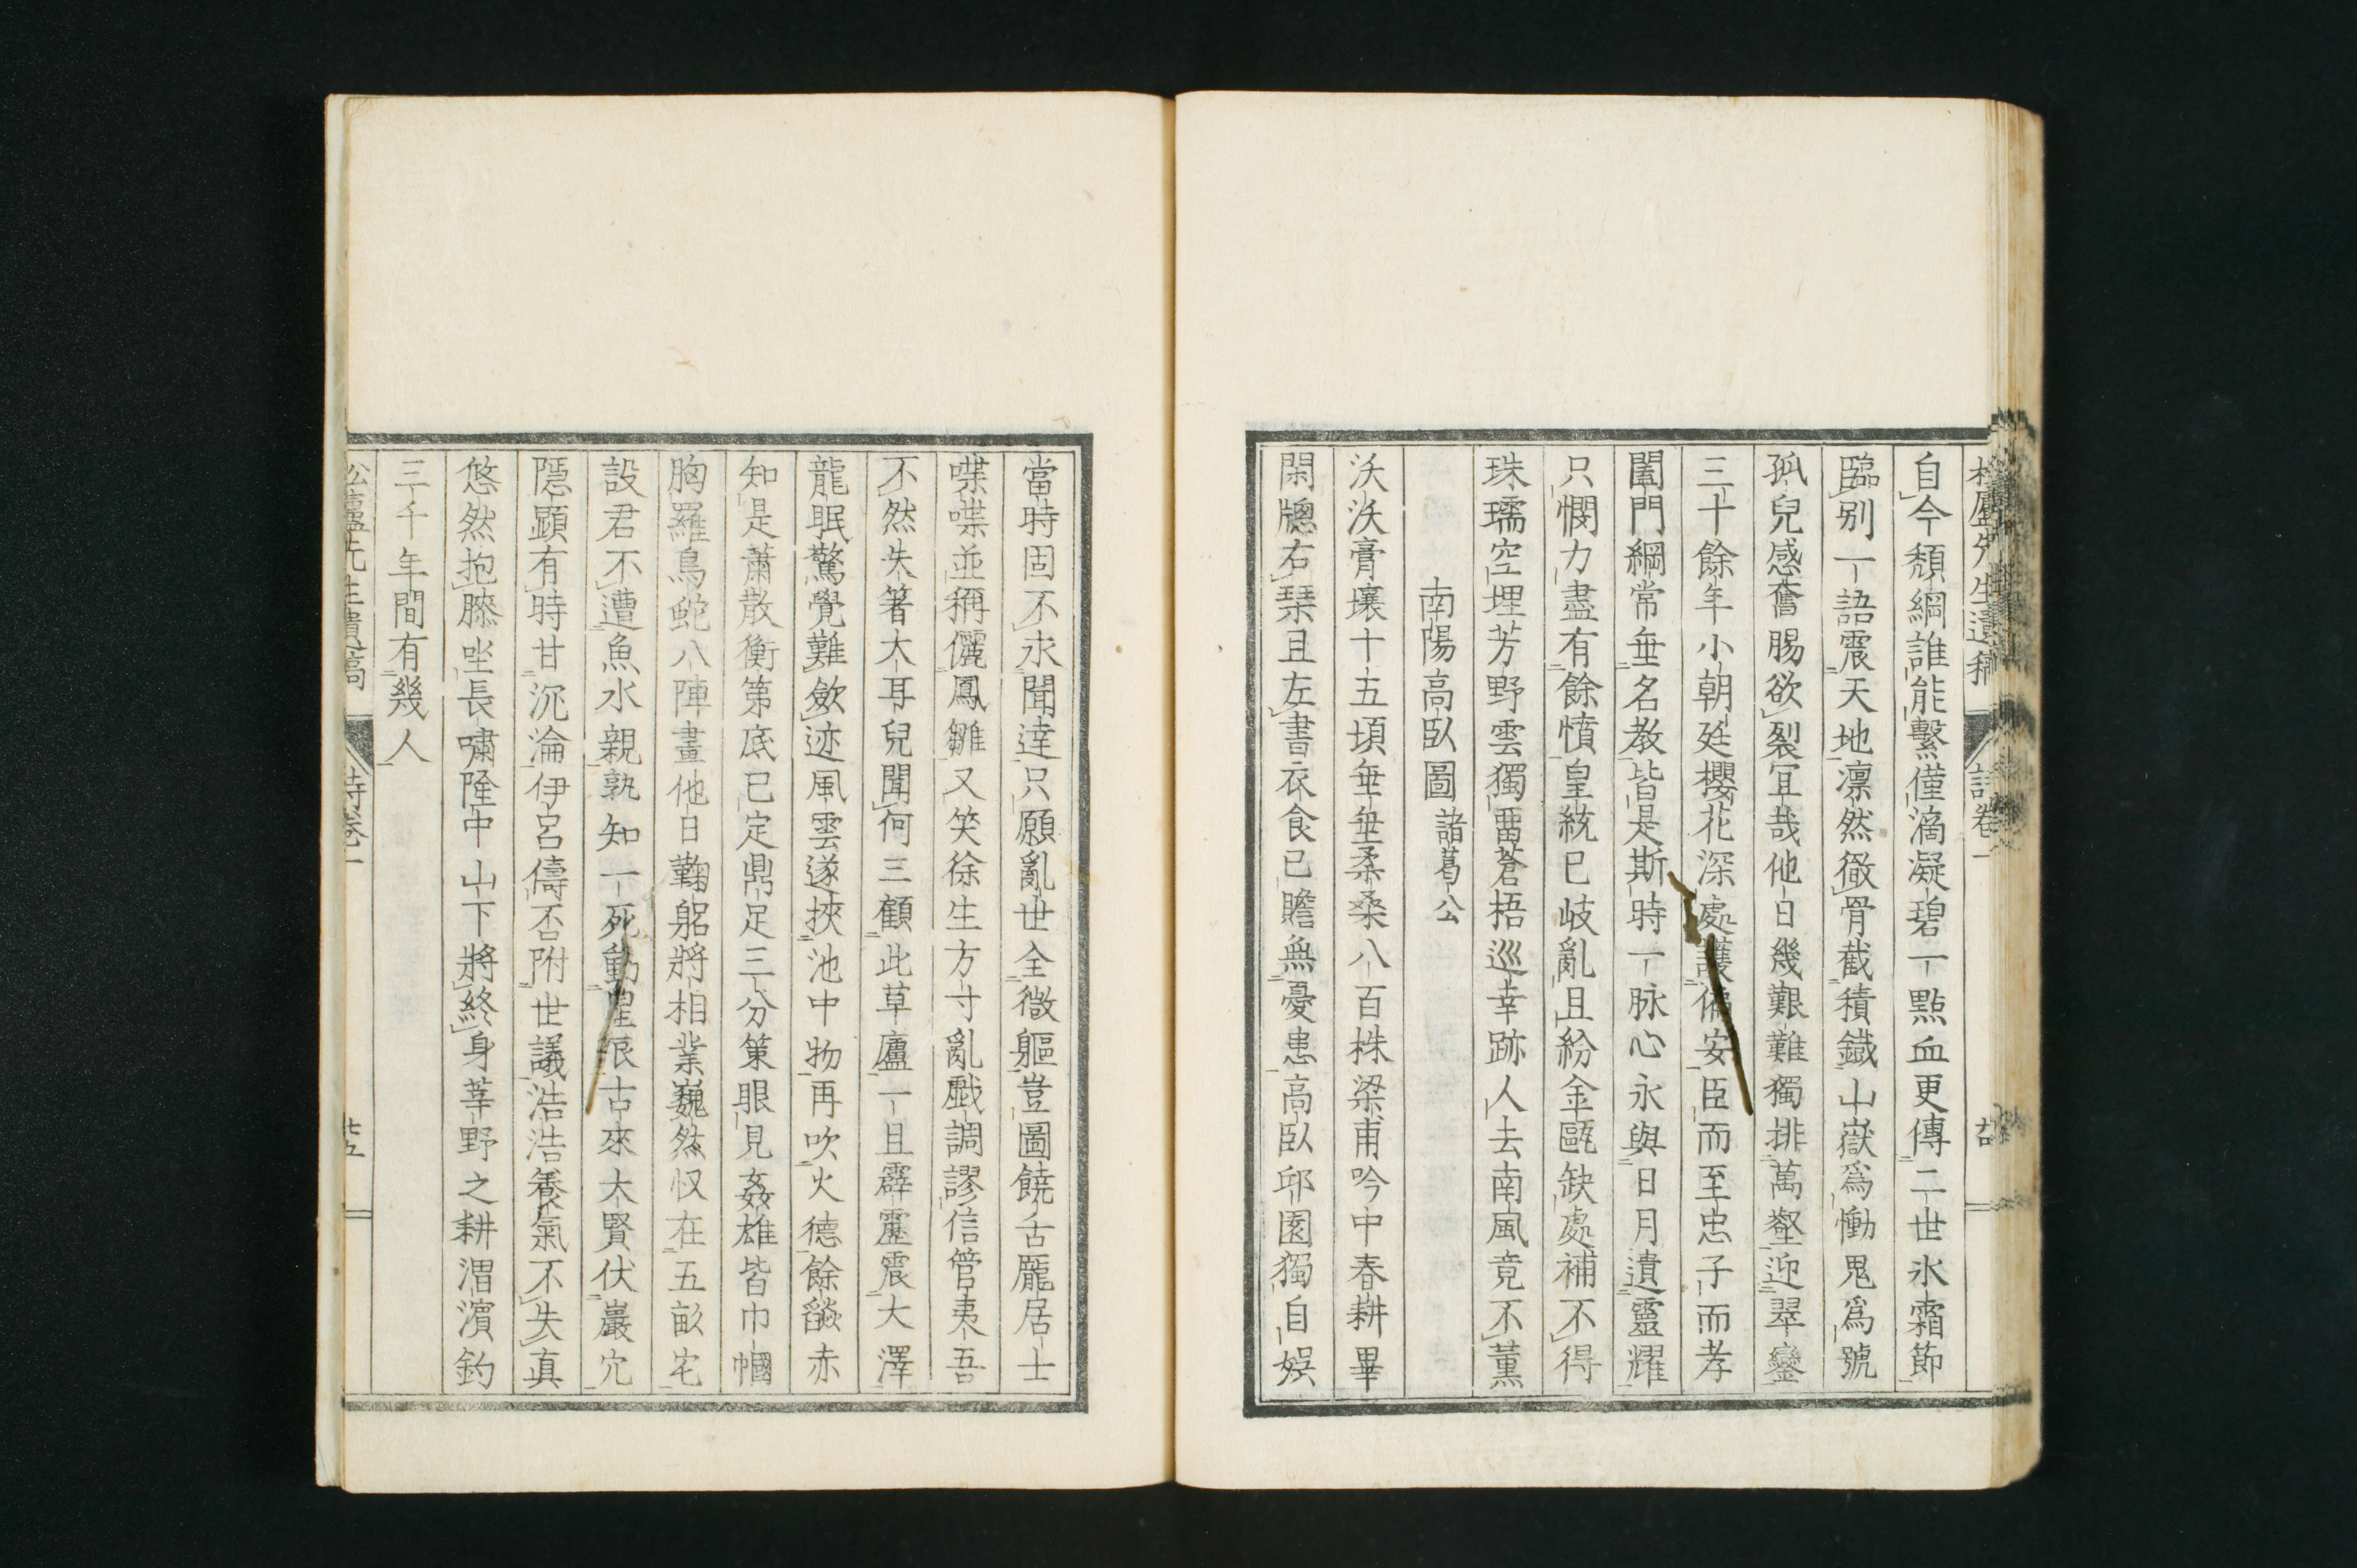 自今頹綱誰能繫僅滴凝碧一點血更傳二世氷霜節
臨別一語震天地凛然徹骨截積鐵山嶽爲慟鬼爲號
孤兒感奮腸欲裂冝哉他日幾艱難獨排萬壑迎翠鑾
三十餘年小朝廷櫻花深處護偏安臣而至忠子而孝
闔門綱常垂名教皆是斯時一脉心永與日月遺靈耀
只憫力盡有餘憤皇統已岐亂且紛金甌缺處補不得
珠璫空埋芳野雲獨留蒼梧巡幸跡人去南風竟不薰
南陽高臥圖諸葛公
沃沃膏壤十五頃垂垂柔桑八百株梁甫吟中春耕畢
閑牕右琹且左書衣食已贍無憂患高臥邱園獨自娯
當時固不求聞達只願亂世全微軀豈圖饒舌龐居士
喋喋並稱儷鳳雛又笑徐生方寸亂戲調謬信管夷吾
不然失箸大耳兒聞何三顧此草廬一旦霹靂震大澤
龍眠驚覺難歛迹風雲遂挾池中物再吹火德餘燄赤
知是蕭散衡茅底已定鼎足三分策眼見姦雄皆巾幗
胸羅鳥蛇八陣畫他日鞠躬將相業巍然伋在五畝宅
設君不遭魚水親孰知一死動星辰古來大賢伏巖穴
隱顯有時甘沉淪伊呂儔否附世議浩浩養氣不失真
悠然抱膝坐長嘯隆中山下將終身莘野之耕渭濱釣
三千年間有幾人
松廬先生遺稿 詩卷一 廿五